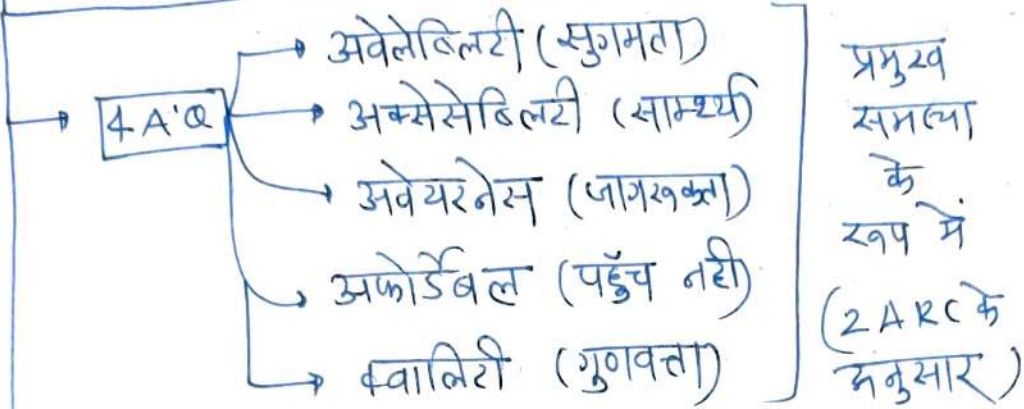 4A'Q
अवेलेबिलटी (सुगमता)
अक्सेसेबिलटी (सामर्थ्य)
अवेयरनेस (जागरूकता)
अफोर्डेबल (पहुँच नही)
क्वालिटी (गुणवत्ता)
प्रमुख
समस्या
के
रूप में
(2ARC के
अनुसार)